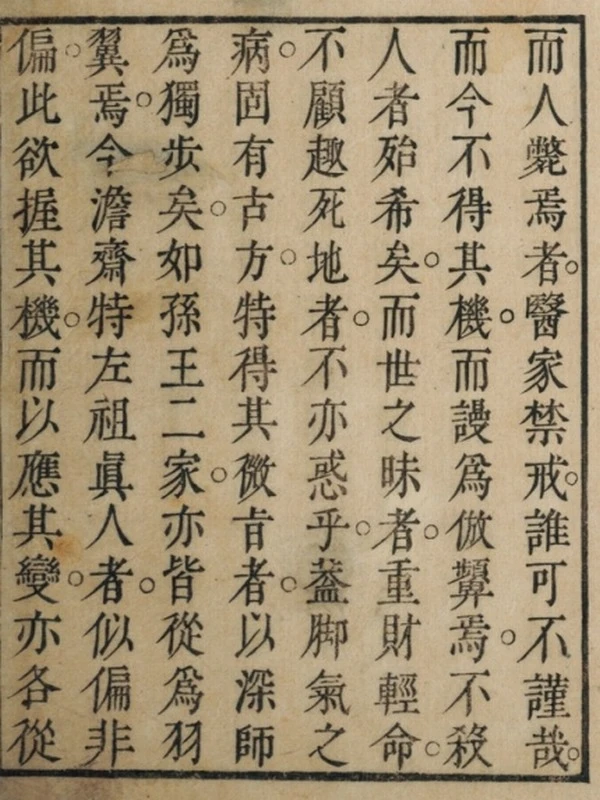 而人斃焉者。醫家禁戒。誰可不謹哉。
而今不得其機。而謾爲倣顰焉。不殺
人者殆希矣。而世之昧者。重財輕命。
不顧趣死地者。不亦惑乎。葢脚氣之
病。固有古方。特得其微旨者。以深師
爲獨步矣。如孫王二家。亦皆從爲羽
翼焉。今澹齋特左祖眞人者。似偏非
偏。此欲握其機。而以應其變。亦各從